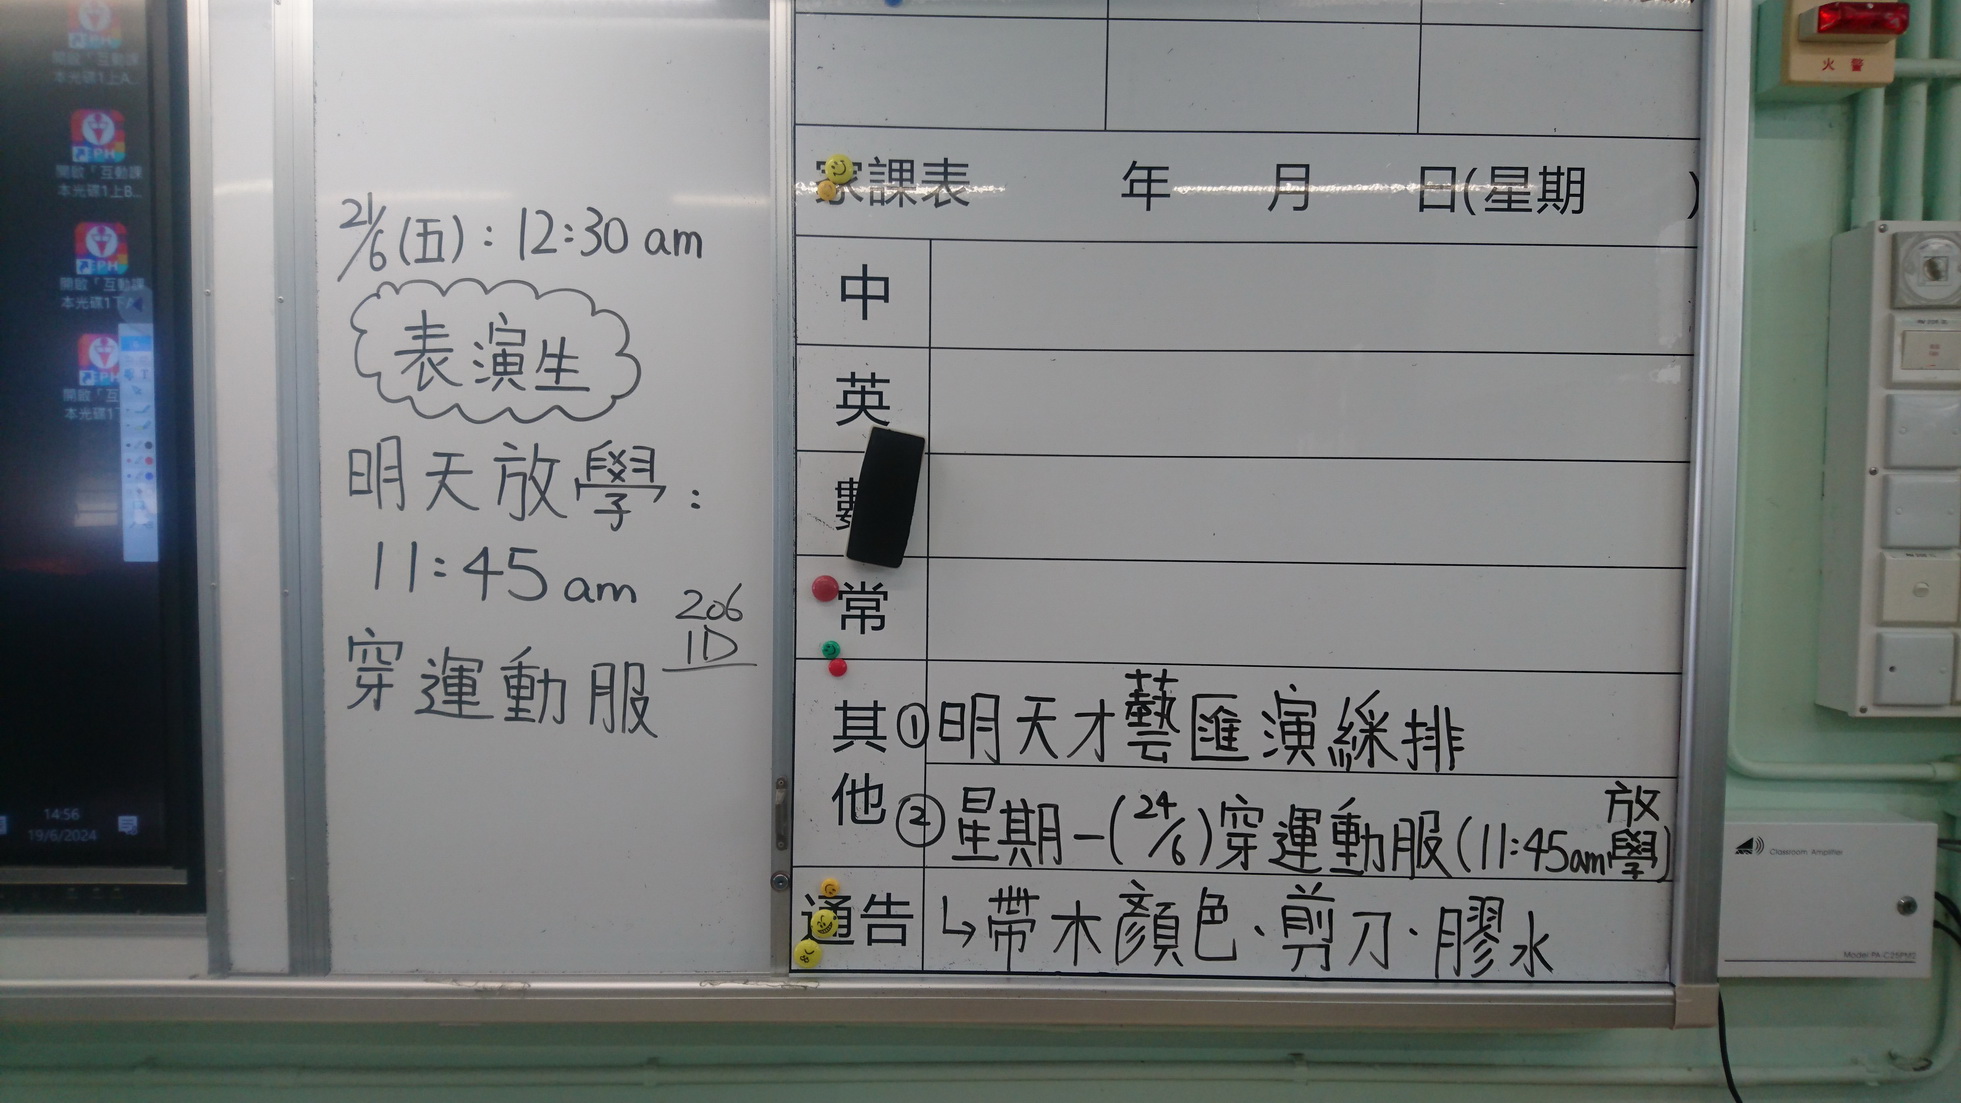 開啟「互動課
本光碟1上A...
開啟「互動課
本光碟1上B...
開啟「互動課
本光碟1下
開啟「互
本光碟1
14:56
19/6/2024
21/6(五):12:30 am
表演生
明天放學:
11:45am
穿運動服
206
1D
家課表 年 月 日(星期 )
中
英
數
常
其他
①明天才藝匯演綵排
②星期一(24/6)穿運動服(11:45am放學)
通告
↳帶木顏色、剪刀、膠水
火警
Classroom Amplifier
Model PA-C25PM2